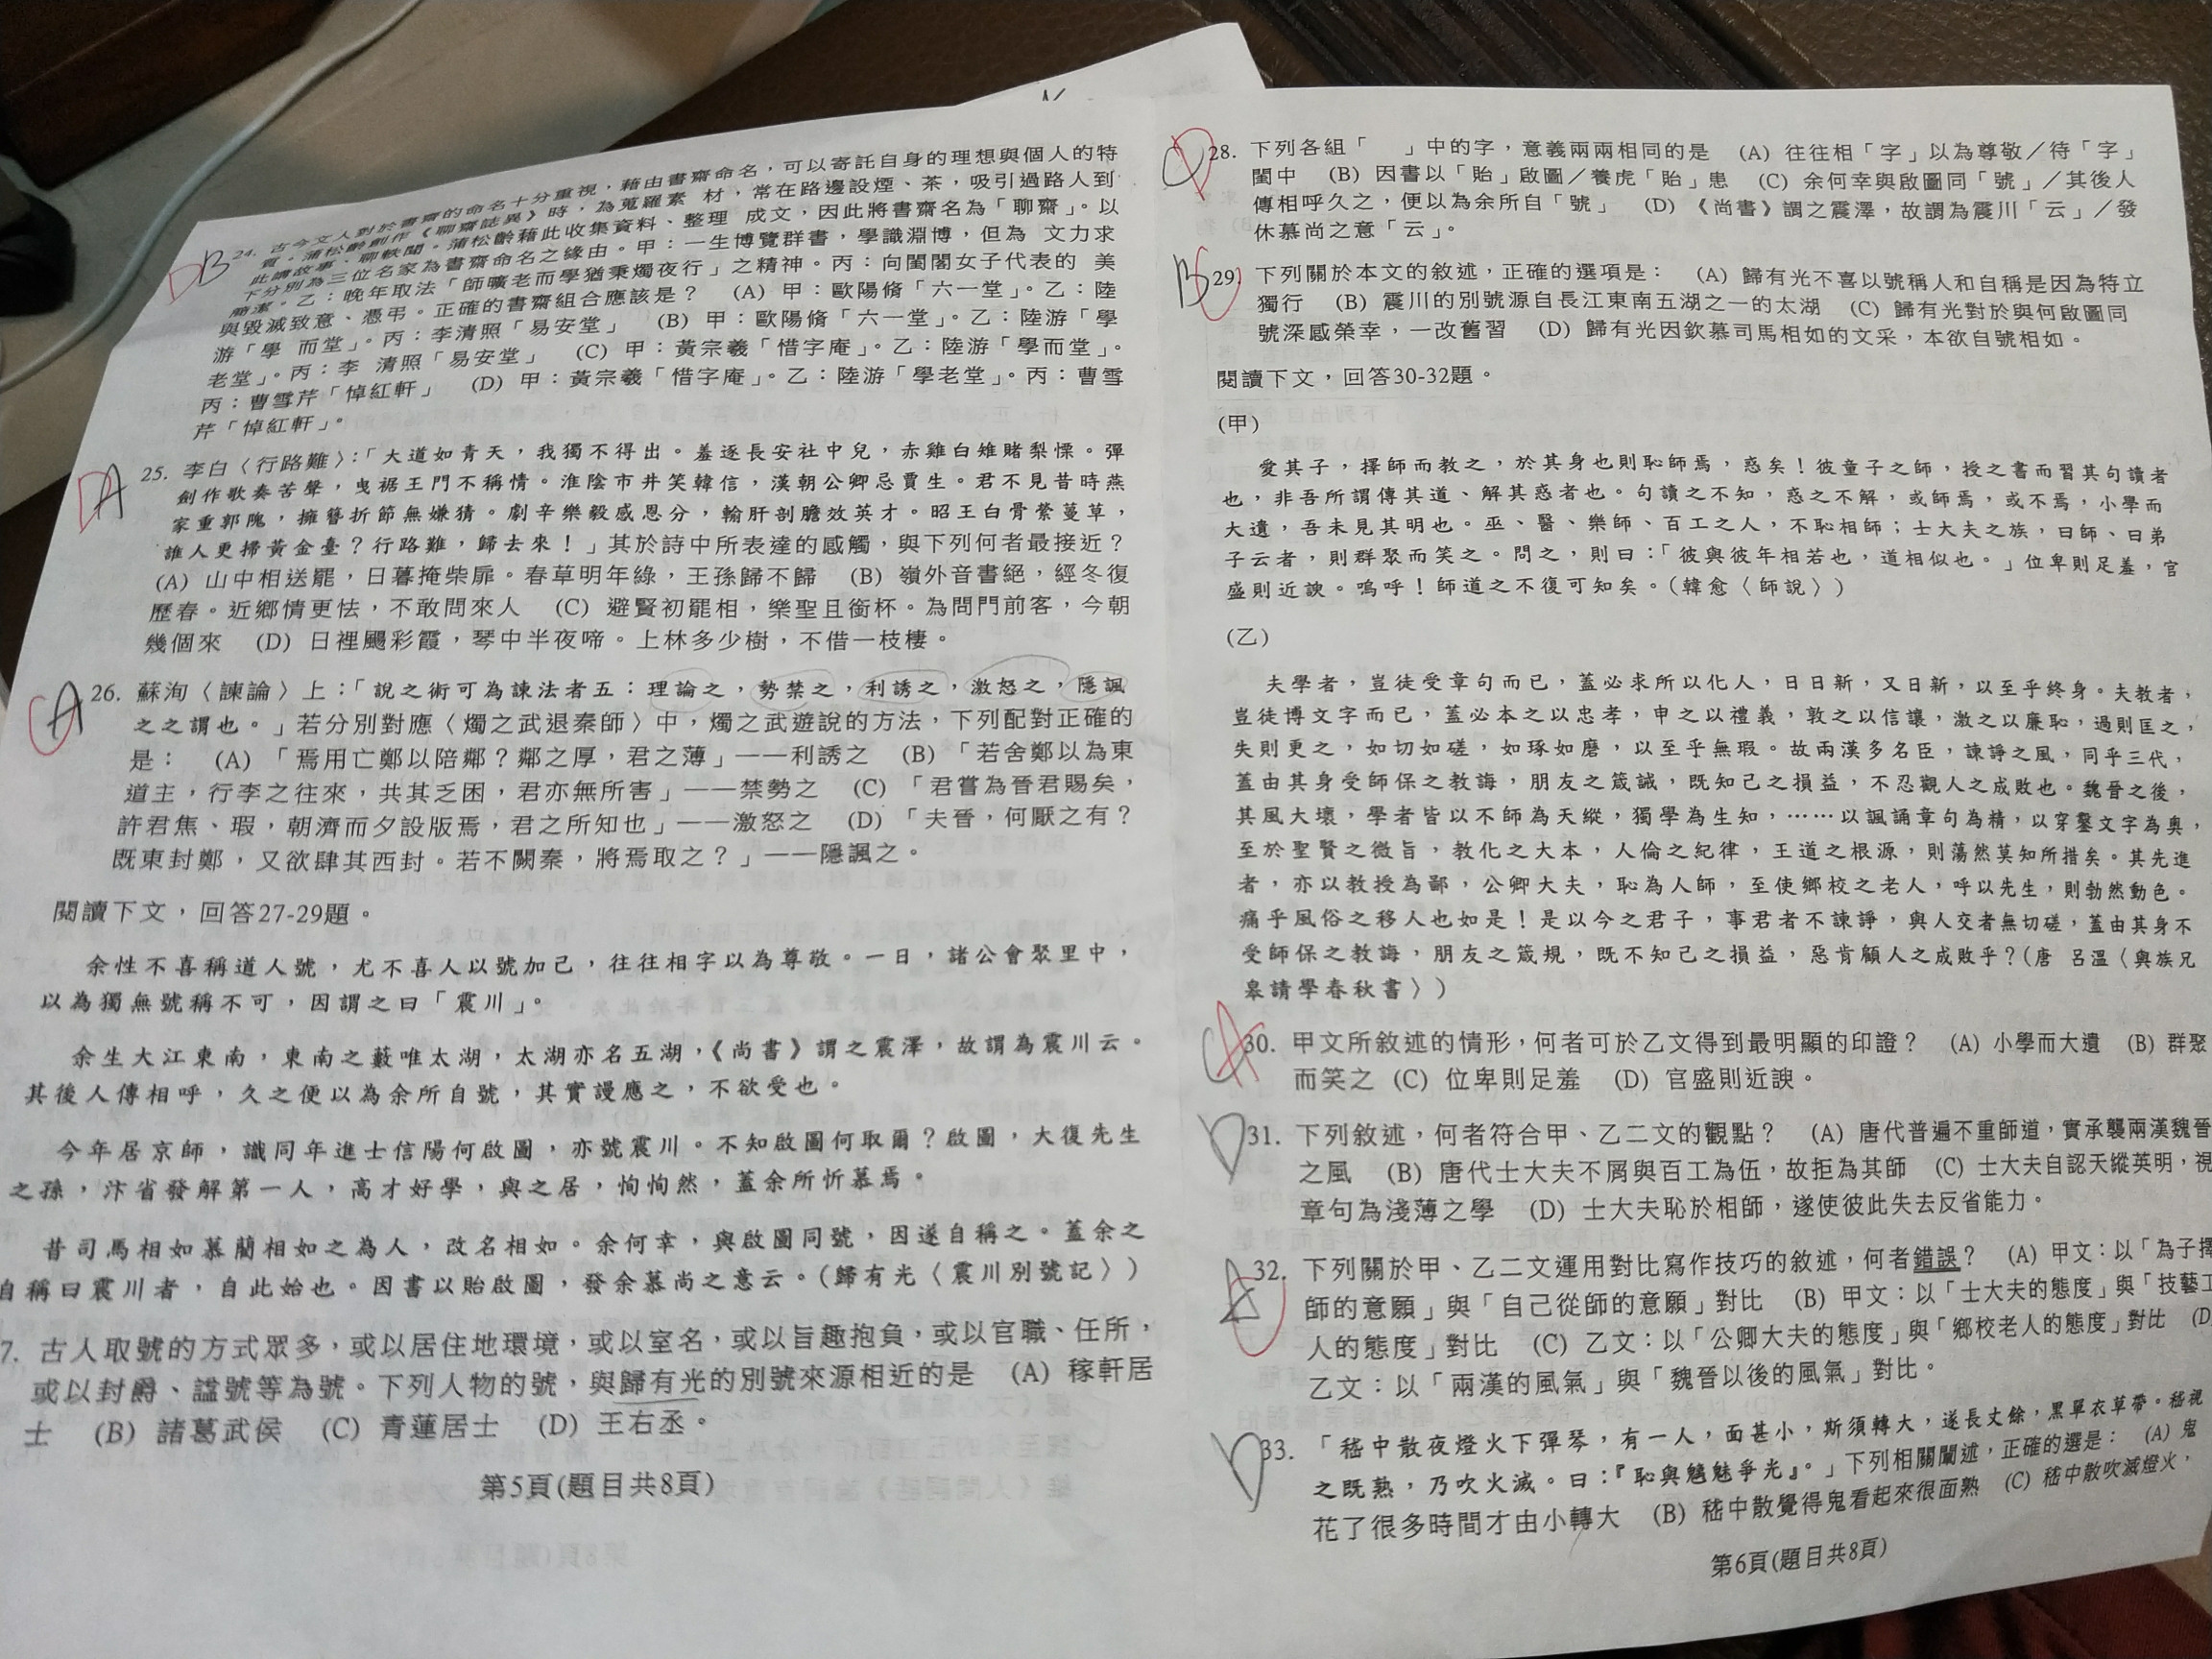 24. 古今文人對於書齋的命名十分重視，藉由書齋命名，可以寄託自身的理想與個人的特
質。蒲松齡創作《聊齋誌異》時，為蒐羅素 材，常在路邊設煙、茶，吸引過路人到
此講故事、聊軼聞。蒲松齡藉此收集資料、整理 成文，因此將書齋名為「聊齋」。以
下分別為三位名家為書齋命名之緣由。甲：一生博覽群書，學識淵博，但為 文力求
簡潔。乙：晚年取法「師曠老而學猶秉燭夜行」之精神。丙：向閨閣女子代表的 美
與毀滅致意、憑弔。正確的書齋組合應該是？ (A) 甲：歐陽脩「六一堂」。乙：陸
游「學 而堂」。丙：李清照「易安堂」 (B) 甲：歐陽脩「六一堂」。乙：陸游「學
老堂」。丙：李 清照「易安堂」 (C) 甲：黃宗羲「惜字庵」。乙：陸游「學而堂」。
丙：曹雪芹「悼紅軒」 (D) 甲：黃宗羲「惜字庵」。乙：陸游「學老堂」。丙：曹雪
芹「悼紅軒」。
D B
25. 李白〈行路難〉：「大道如青天，我獨不得出。羞逐長安社中兒，赤雞白雉賭梨慄。彈
劍作歌奏苦聲，曳裾王門不稱情。淮陰市井笑韓信，漢朝公卿忌賈生。君不見昔時燕
家重郭隗，擁篲折節無嫌猜。劇辛樂毅感恩分，輸肝剖膽效英才。昭王白骨縈蔓草，
誰人更掃黃金臺？行路難，歸去來！」其於詩中所表達的感觸，與下列何者最接近？
(A) 山中相送罷，日暮掩柴扉。春草明年綠，王孫歸不歸 (B) 嶺外音書絕，經冬復
歷春。近鄉情更怯，不敢問來人 (C) 避賢初罷相，樂聖且銜杯。為問門前客，今朝
幾個來 (D) 日裡颺彩霞，琴中半夜啼。上林多少樹，不借一枝棲。
D A
26. 蘇洵〈諫論〉上：「說之術可為諫法者五：理論之，勢禁之，利誘之，激怒之，隱諷
之之謂也。」若分別對應〈燭之武退秦師〉中，燭之武遊說的方法，下列配對正確的
是： (A) 「焉用亡鄭以陪鄰？鄰之厚，君之薄」——利誘之 (B) 「若舍鄭以為東
道主，行李之往來，共其乏困，君亦無所害」——禁勢之 (C) 「君嘗為晉君賜矣，
許君焦、瑕，朝濟而夕設版焉，君之所知也」——激怒之 (D) 「夫晉，何厭之有？
既東封鄭，又欲肆其西封。若不闕秦，將焉取之？」——隱諷之。
C A
閱讀下文，回答27-29題。
余性不喜稱道人號，尤不喜人以號加己，往往相字以為尊敬。一日，諸公會聚里中，
以為獨無號稱不可，因謂之曰「震川」。
余生大江東南，東南之藪唯太湖，太湖亦名五湖，《尚書》謂之震澤，故謂為震川云。
其後人傳相呼，久之便以為余所自號，其實謾應之，不欲受也。
今年居京師，識同年進士信陽何啟圖，亦號震川。不知啟圖何取爾？啟圖，大復先生
之孫，汴省發解第一人，高才好學，與之居，恂恂然，蓋余所忻慕焉。
昔司馬相如慕藺相如之為人，改名相如。余何幸，與啟圖同號，因遂自稱之。蓋余之
自稱曰震川者，自此始也。因書以貽啟圖，發余慕尚之意云。（歸有光〈震川別號記〉）
7. 古人取號的方式眾多，或以居住地環境，或以室名，或以旨趣抱負，或以官職、任所，
或以封爵、諡號等為號。下列人物的號，與歸有光的別號來源相近的是 (A) 稼軒居
士 (B) 諸葛武侯 (C) 青蓮居士 (D) 王右丞。
第5頁(題目共8頁)
28. 下列各組「 」中的字，意義兩兩相同的是 (A) 往往相「字」以為尊敬／待「字」
閨中 (B) 因書以「貽」啟圖／養虎「貽」患 (C) 余何幸與啟圖同「號」／其後人
傳相呼久之，便以為余所自「號」 (D) 《尚書》謂之震澤，故謂為震川「云」／發
休慕尚之意「云」。
29. 下列關於本文的敘述，正確的選項是： (A) 歸有光不喜以號稱人和自稱是因為特立
獨行 (B) 震川的別號源自長江東南五湖之一的太湖 (C) 歸有光對於與何啟圖同
號深感榮幸，一改舊習 (D) 歸有光因欽慕司馬相如的文采，本欲自號相如。
B
閱讀下文，回答30-32題。
（甲）
愛其子，擇師而教之，於其身也則恥師焉，惑矣！彼童子之師，授之書而習其句讀者
也，非吾所謂傳其道、解其惑者也。句讀之不知，惑之不解，或師焉，或不焉，小學而
大遺，吾未見其明也。巫、醫、樂師、百工之人，不恥相師；士大夫之族，曰師、曰弟
子云者，則群聚而笑之。問之，則曰：「彼與彼年相若也，道相似也。」位卑則足羞，官
盛則近諛。嗚呼！師道之不復可知矣。（韓愈〈師說〉）
（乙）
夫學者，豈徒受章句而已，蓋必求所以化人，日日新，又日新，以至乎終身。夫教者，
豈徒博文字而已，蓋必本之以忠孝，申之以禮義，敦之以信讓，激之以廉恥，過則匡之，
失則更之，如切如磋，如琢如磨，以至乎無瑕。故兩漢多名臣，諫諍之風，同乎三代，
蓋由其身受師保之教誨，朋友之箴誡，既知己之損益，不忍觀人之成敗也。魏晉之後，
其風大壞，學者皆以不師為天縱，獨學為生知，……以諷誦章句為精，以穿鑿文字為奧，
至於聖賢之微旨，教化之大本，人倫之紀律，王道之根源，則蕩然莫知所措矣。其先進
者，亦以教授為鄙，公卿大夫，恥為人師，至使鄉校之老人，呼以先生，則勃然動色。
痛乎風俗之移人也如是！是以今之君子，事君者不諫諍，與人交者無切磋，蓋由其身不
受師保之教誨，朋友之箴規，既不知己之損益，惡肯顧人之成敗乎？（唐 呂溫〈與族兄
皋請學春秋書〉）
30. 甲文所敘述的情形，何者可於乙文得到最明顯的印證？ (A) 小學而大遺 (B) 群聚
而笑之 (C) 位卑則足羞 (D) 官盛則近諛。
C A
31. 下列敘述，何者符合甲、乙二文的觀點？ (A) 唐代普遍不重師道，實承襲兩漢魏晉
之風 (B) 唐代士大夫不屑與百工為伍，故拒為其師 (C) 士大夫自認天縱英明，視
章句為淺薄之學 (D) 士大夫恥於相師，遂使彼此失去反省能力。
D
32. 下列關於甲、乙二文運用對比寫作技巧的敘述，何者錯誤？ (A) 甲文：以「為子擇
師的意願」與「自己從師的意願」對比 (B) 甲文：以「士大夫的態度」與「技藝工
人的態度」對比 (C) 乙文：以「公卿大夫的態度」與「鄉校老人的態度」對比 (D
乙文：以「兩漢的風氣」與「魏晉以後的風氣」對比。
33. 「嵇中散夜燈火下彈琴，有一人，面甚小，斯須轉大，遂長丈餘，黑單衣草帶。嵇視
之既熟，乃吹火滅。曰：『恥與魑魅爭光』。」下列相關闡述，正確的選是： (A) 鬼
花了很多時間才由小轉大 (B) 嵇中散覺得鬼看起來很面熟 (C) 嵇中散吹滅燈火，
D
第6頁(題目共8頁)